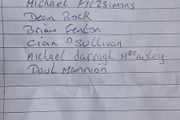 Michael Fitzsimons
Dean Rock
Brian Fenton
Cian O'Sullivan
Michael darragh Macauley
Paul Mannion